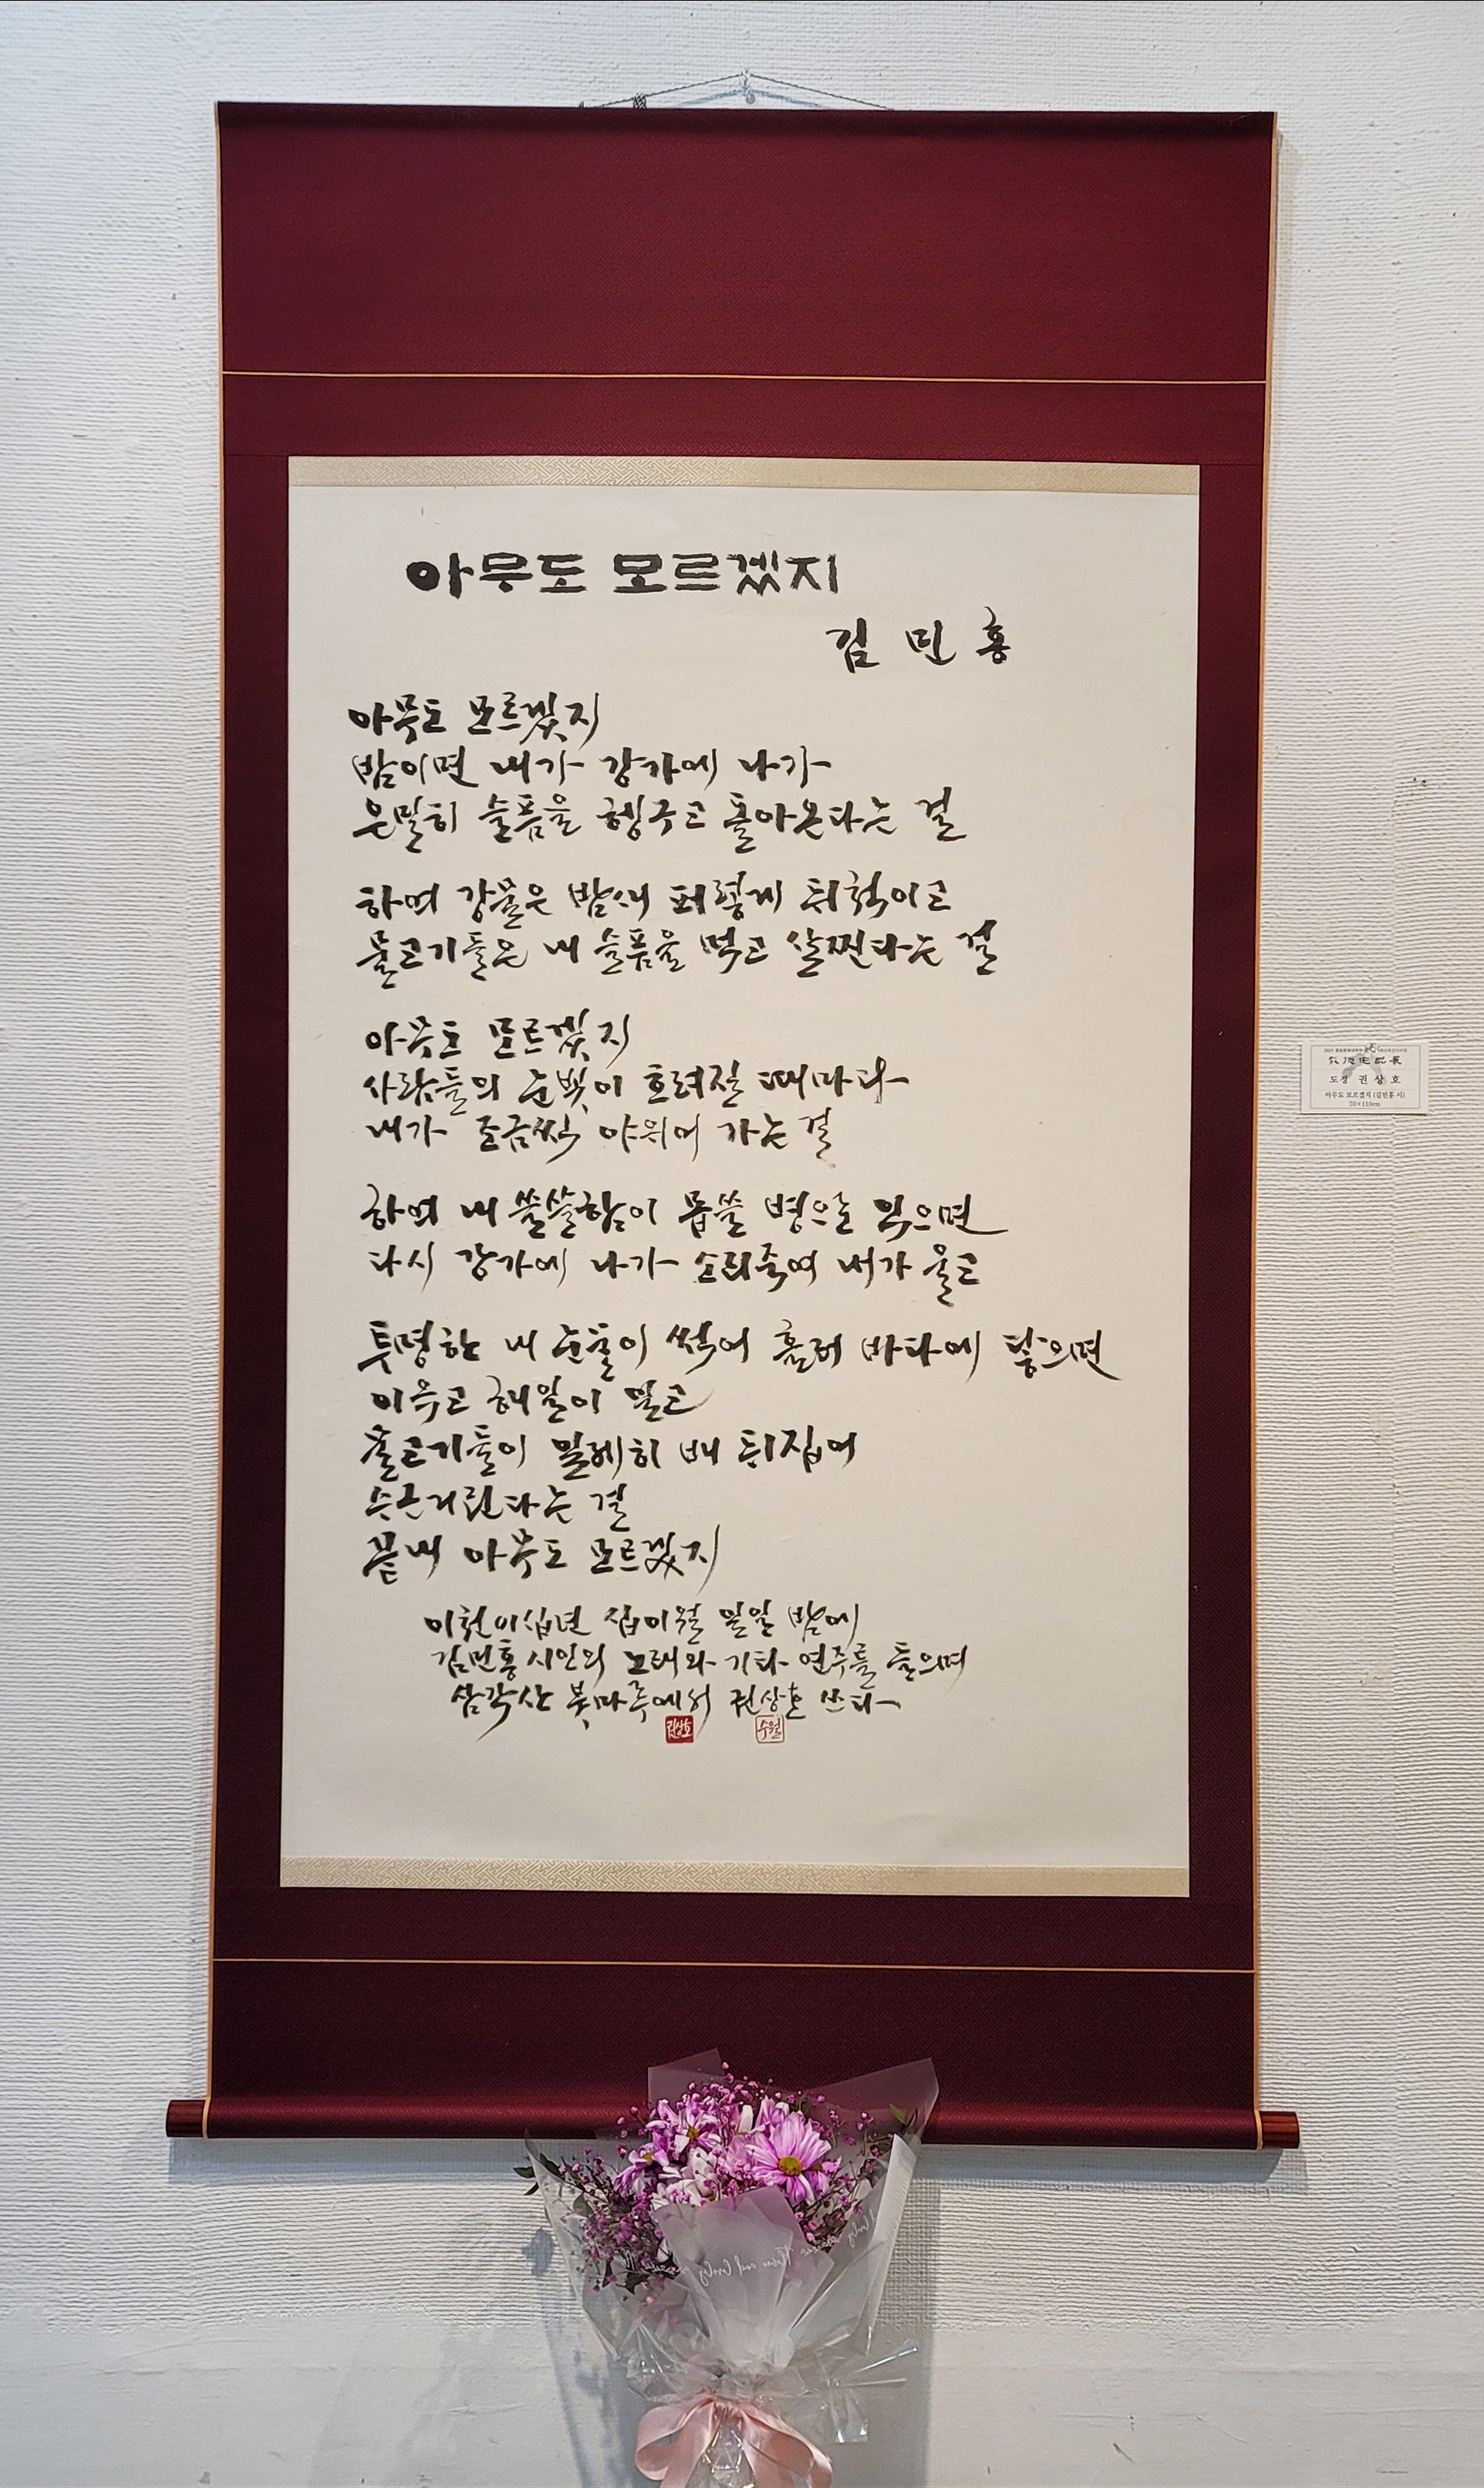 아무도 모르겠지
김 민 홍
아무도 모르겠지
밤이면 내가 강가에 나가
은밀히 슬픔을 헹구고 돌아온다는 걸
하여 강물은 밤새 퍼렇게 뒤척이고
물고기들은 내 슬픔을 먹고 살찐다는 걸
아무도 모르겠지
사람들의 눈빛이 흐려질 때마다
내가 조금씩 야위어 가는 걸
하여 내 쓸쓸함이 몹쓸 병으로 익으면
다시 강가에 나가 소리죽여 내가 울고
투명한 내 눈물이 썩어 흘러 바다에 닿으면
이윽고 해일이 일고
물고기들이 일제히 배 뒤집어
수근거린다는 걸
끝내 아무도 모르겠지
이천이십년 십이월 일일 밤에
김민홍 시인의 노래와 기타 연주를 들으며
삼각산 붓마루에서 권상호 쓰다
권상호
수월
도정 권 상 호
아무도 모르겠지 (김민홍 시)
70×110cm